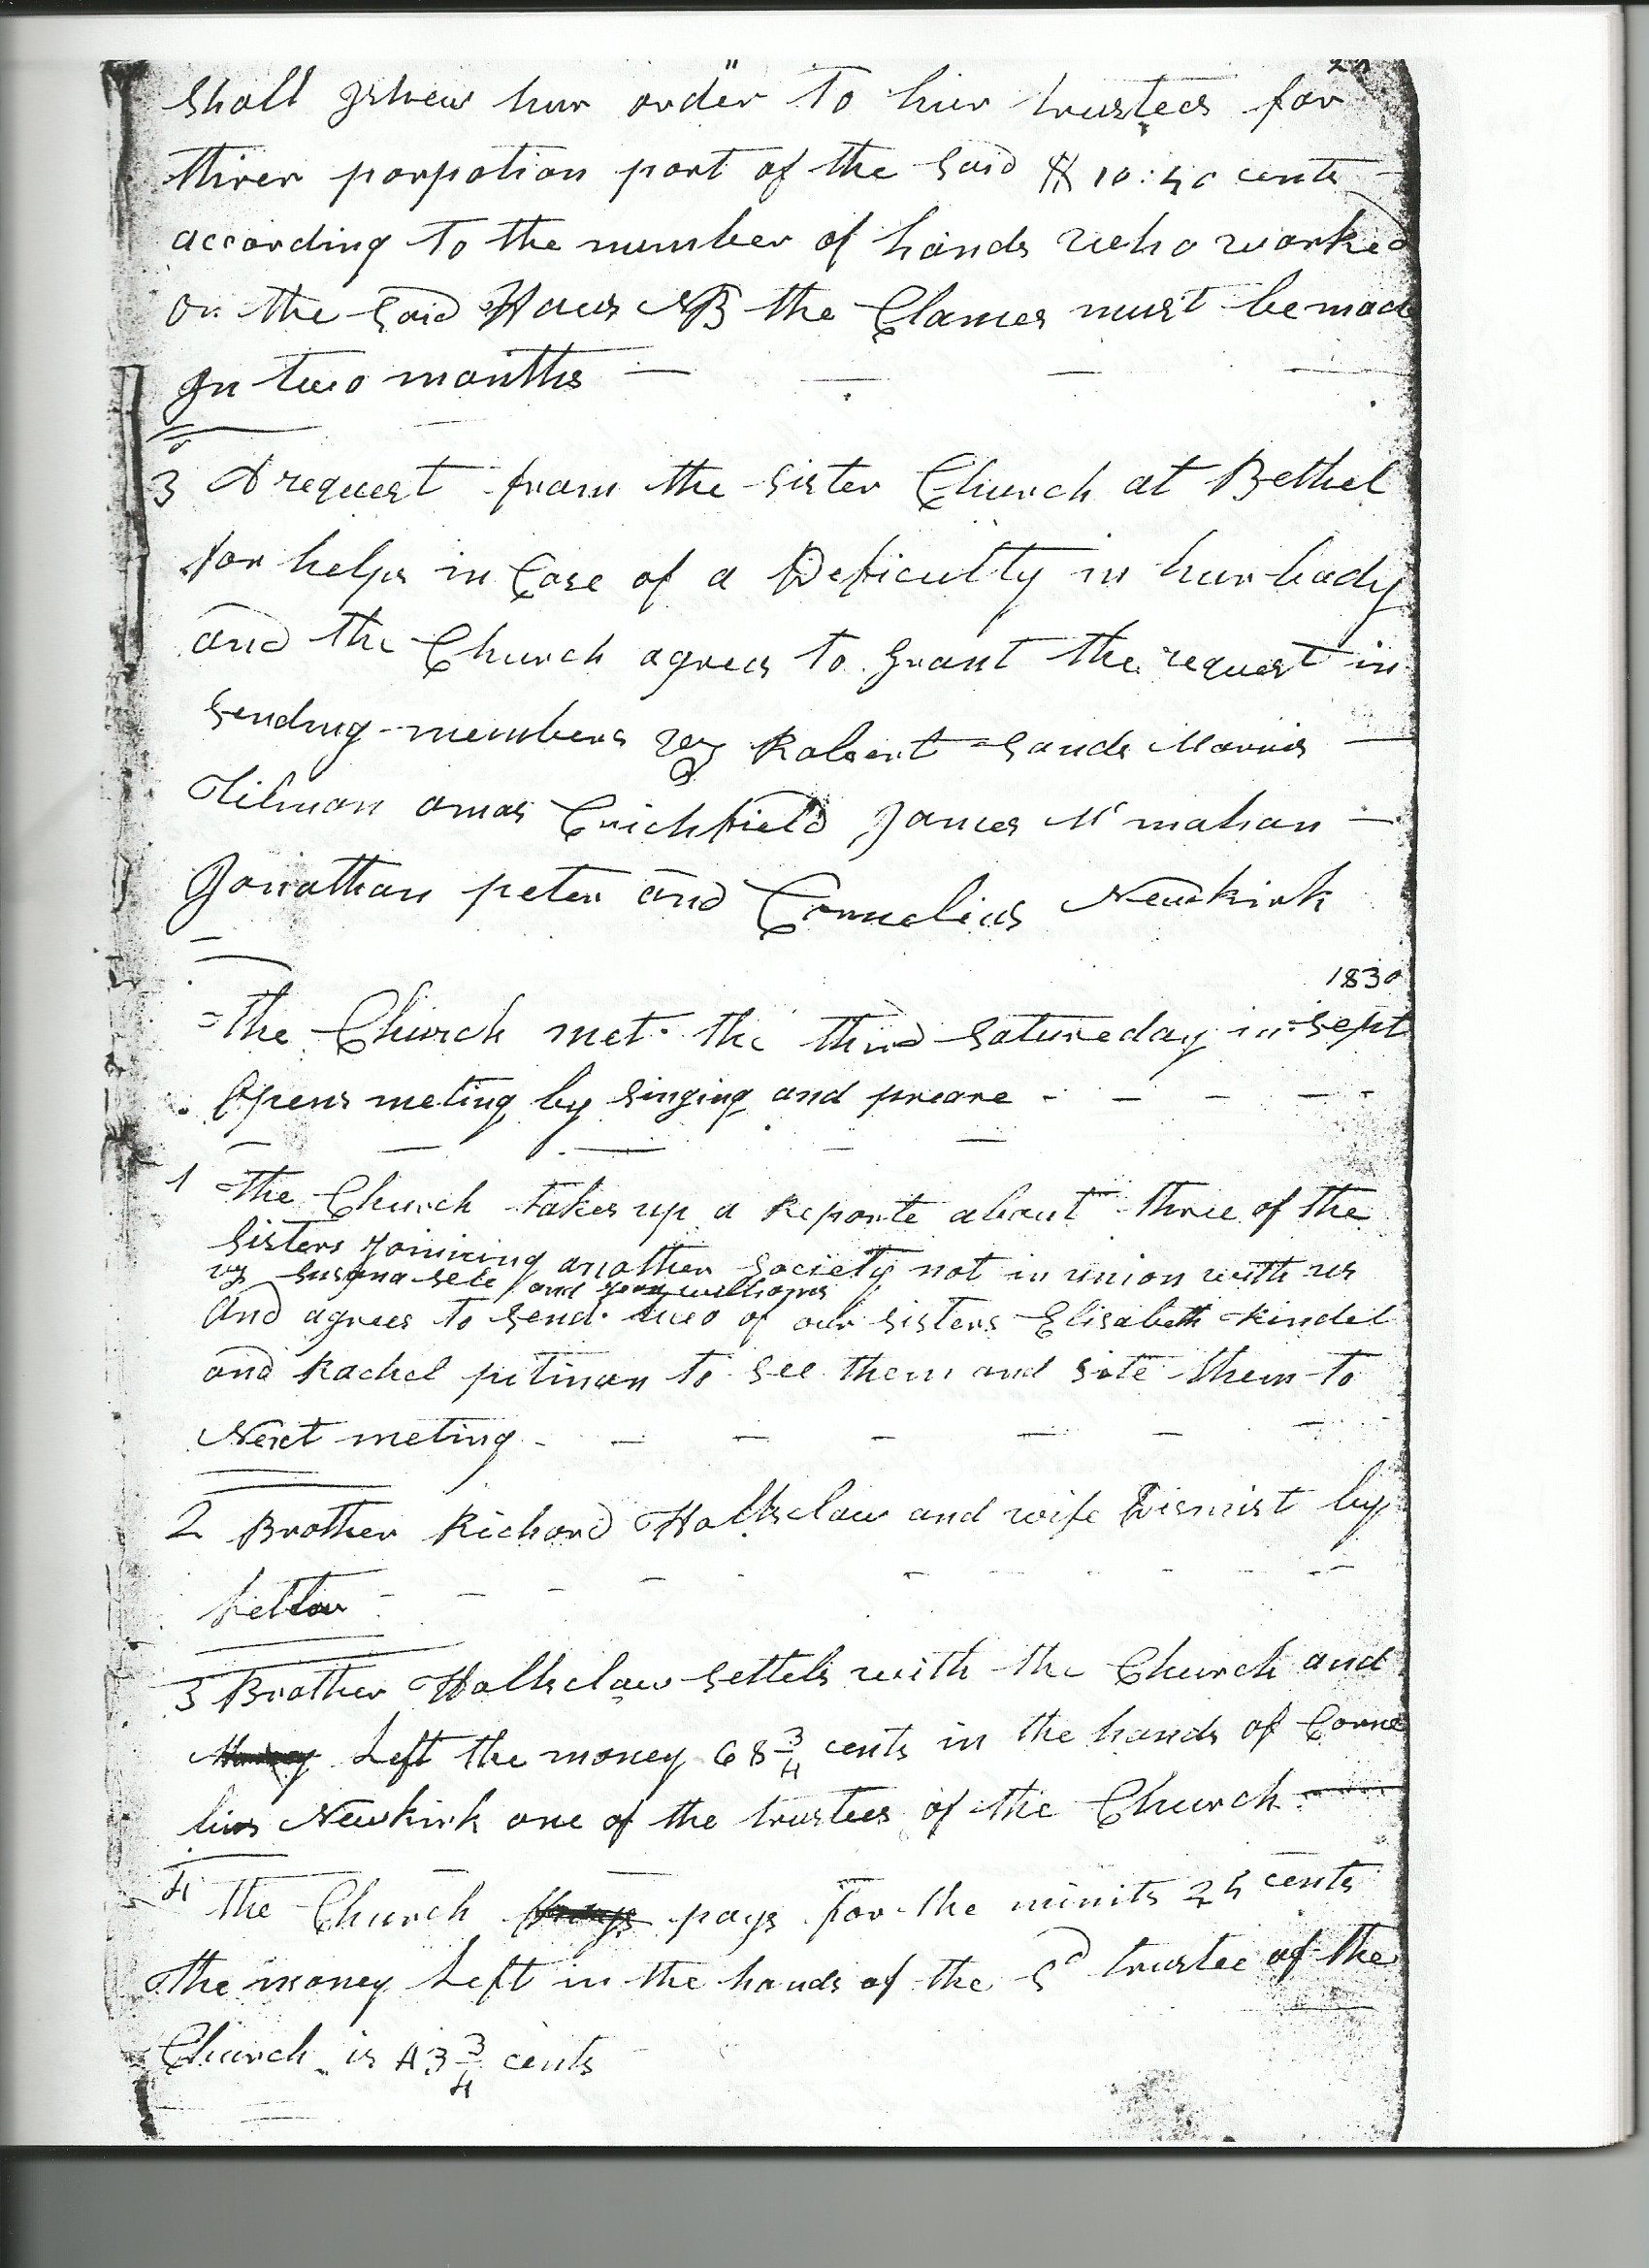 Shall Ishew hur order to hur trustees for
thirer porpotion part of the Said $ 10:50 cents
according to the number of hands who worked
on the Said Hous NB the Clames must be made
In two months
3 A request from the Sister Church at Bethel
for helps in Case of a Deficulty in hur body
and the Church agrees to Grant the request in
Sending members vz Robert Sands Morris
Tilman amos Crichfield James Mc mahan
Jonathan peter and Cornelius Newkirk
1830
the Church met the third Satureday in Sept
Opens meting by Singing and preare
1 the Church takes up a Reporte about three of the
Sisters Joinining another Society not in union with us
vz Susana Sele and williams
And agrees to Send two of our Sisters Elisabeth Kindel
and Rachel pitman to See them and Site them to
Next meting
2 Brother Richard Holtsclaw and wife Dismist by
Letter
3 Brother Holtsclaw Settels with the Church and
Left the money 68 3/4 cents in the hands of Corne
lius Newkirk one of the trustees of the Church
4 the Church pays for the minits 25 cents
the money Left in the hands of the Sd trustee of the
Church is 43 3/4 cents